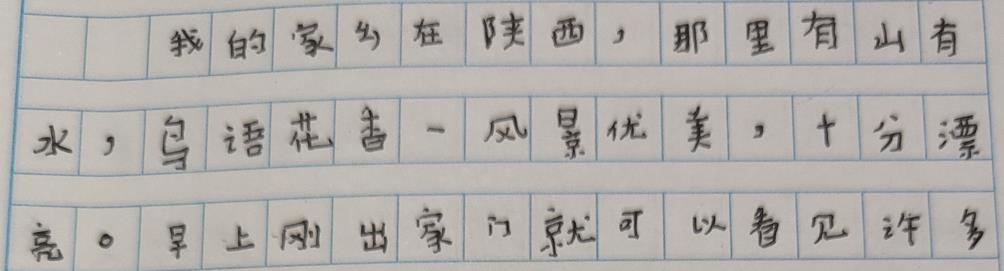 我的家乡在陕西，那里有山有
水，鸟语花香一风景优美，十分漂
亮。早上刚出家门就可以看见许多